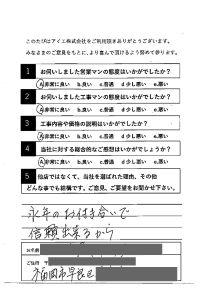 このたびはアイエ株式会社をご利用頂きありがとうございます。
みなさまのご意見をもとに、より喜んで頂けるよう努めて参ります。
1 お伺いしました営業マンの態度はいかがでしたか？
A非常に良い b.良い c.普通 d.少し悪い e.悪い
2 お伺いしました工事マンの態度はいかがでしたか？
A非常に良い b.良い c.普通 d.少し悪い e.悪い
3 工事内容や価格の説明はいかがでしたか？
A非常に良い b.良い c.普通 d.少し悪い e.悪い
4 当社に対する総合的なご感想はいかがでしょうか？
A非常に良い b.良い c.普通 d.少し悪い e.悪い
5 他店ではなくて、当社を選ばれた理由、その他
どんな事でも結構です。ご意見、ご要望をお聞かせ下さい。
永年のお付き合いで
信頼出来るから
お名前
ご住所 〒
福岡市早良区